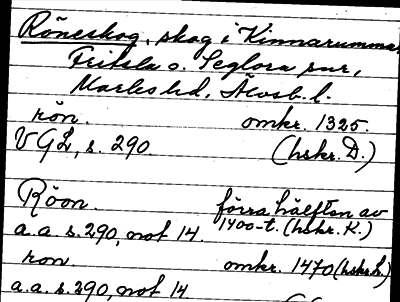 Röneskog, skog i Kinnarumma,
Fritsla o. Seglora snr,
Marks hd, Älvsb. l.
rön. omkr. 1325.
VGL, s. 290. (hskr. D.)
Röon. förra hälften av
a.a. s. 290, not 14. 1400-t. (hskr. K.)
ron omkr. 1470 (hskr. L.)
a.a. s. 290, not 14.